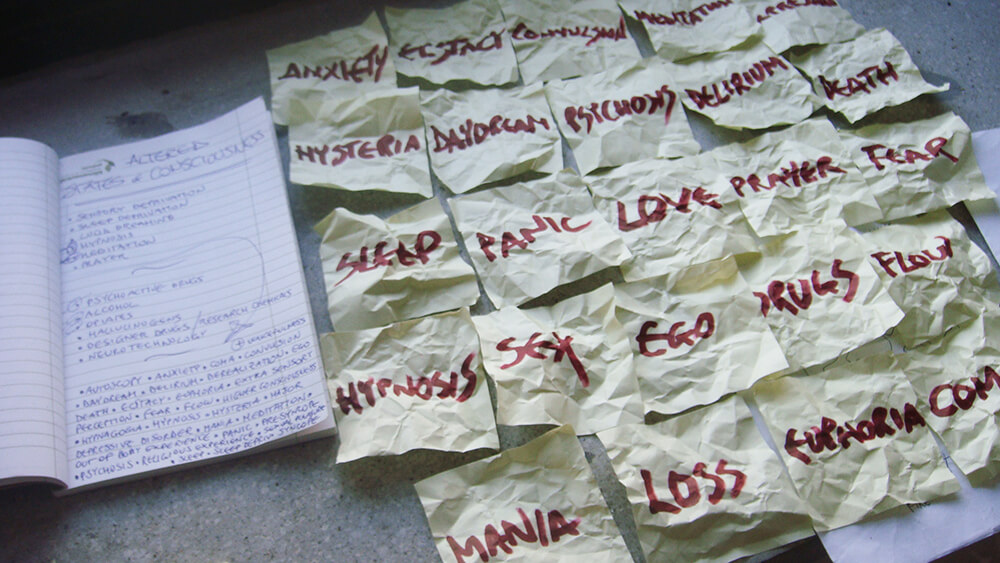 ALTERED
STATES of CONSCIOUSNESS
• SENSORY DEPRIVATION
• SLEEP DEPRIVATION
• LUCID DREAMING
• HYPNOSIS
• MEDITATION
• PRAYER
• PSYCHOACTIVE DRUGS
• ALCOHOL
• OPIATES
• HALLUCINOGENS
• DESIGNER DRUGS/RESEARCH CHEMICALS
• NEUROTECHNOLOGY
• AUTOSCOPY • ANXIETY • COMA • CONVULSION
• DAYDREAM • DELIRIUM • DEREALIZATION • EGO
DEATH • ECSTACY • EUPHORIA • EXTRA SENSORY
PERCEPTION • FEAR • FLOW • HIGHER CONSCIOUSNESS
• HYPNAGOGIA • HYPNOSIS • HYSTERIA •
DEPRESSIVE DISORDER • MANIA • MEDITATION
OUT OF BODY EXPERIENCE • PANIC • PRESYNCOPE
• PSYCHOSIS • RELIGIOUS EXPERIENCE •
• SLEEP • SLEEP DEPRIV • SYNCOPE
ANXIETY ECSTACY CONVULSION MEDITATION
HYSTERIA DAYDREAM PSYCHOSIS DELIRIUM DEATH
SLEEP PANIC LOVE PRAYER FEAR
HYPNOSIS SEX EGO DRUGS FLOW
MANIA LOSS EUPHORIA COM